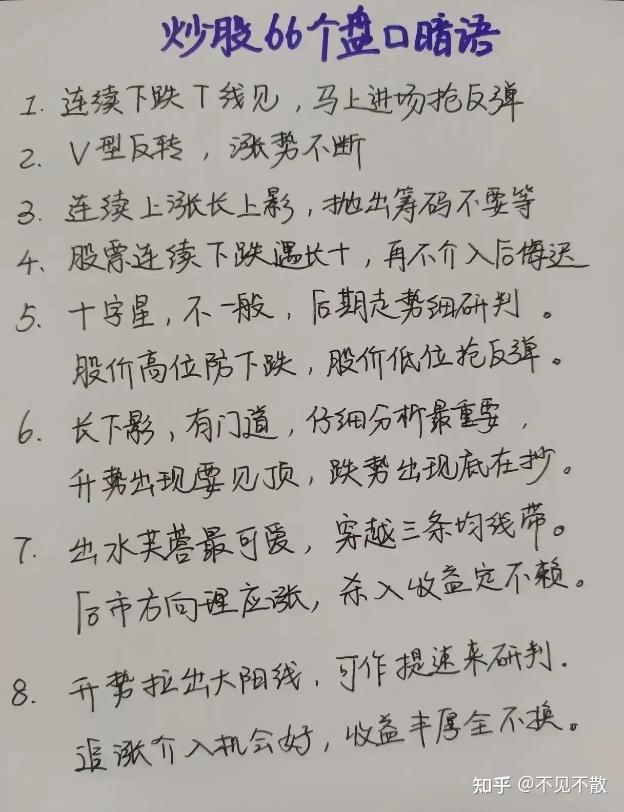 炒股66个盘口暗语
1. 连续下跌T线见，马上进场抢反弹
2. V型反转，涨势不断
3. 连续上涨长上影，抛出筹码不要等
4. 股票连续下跌遇长十，再不介入后悔迟
5. 十字星，不一般，后期走势细研判。
股价高位防下跌，股价低位抢反弹。
6. 长下影，有门道，仔细分析最重要，
升势出现要见顶，跌势出现底在抄。
7. 出水芙蓉最可爱，穿越三条均线带。
后市方向理应涨，杀入收益定不赖。
8. 升势拉出大阳线，可作提速来研判.
追涨介入机会好，收益丰厚全不换。
知乎 @不见不散